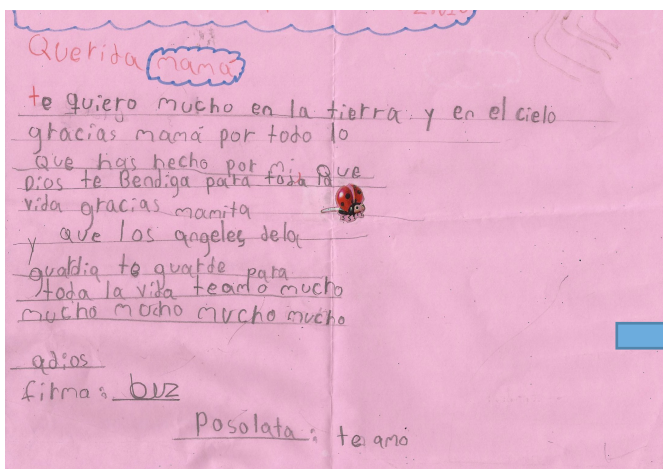 Querida mamá
te quiero mucho en la tierra y en el cielo
gracias mamá por todo lo
que has hecho por mi que
Dios te Bendiga para toda la
vida gracias mamita
y que los angeles dela
guardia te guarde para
toda la vida teamo mucho
mucho mucho mucho mucho
adios
firma: buz
Posolata: te amo